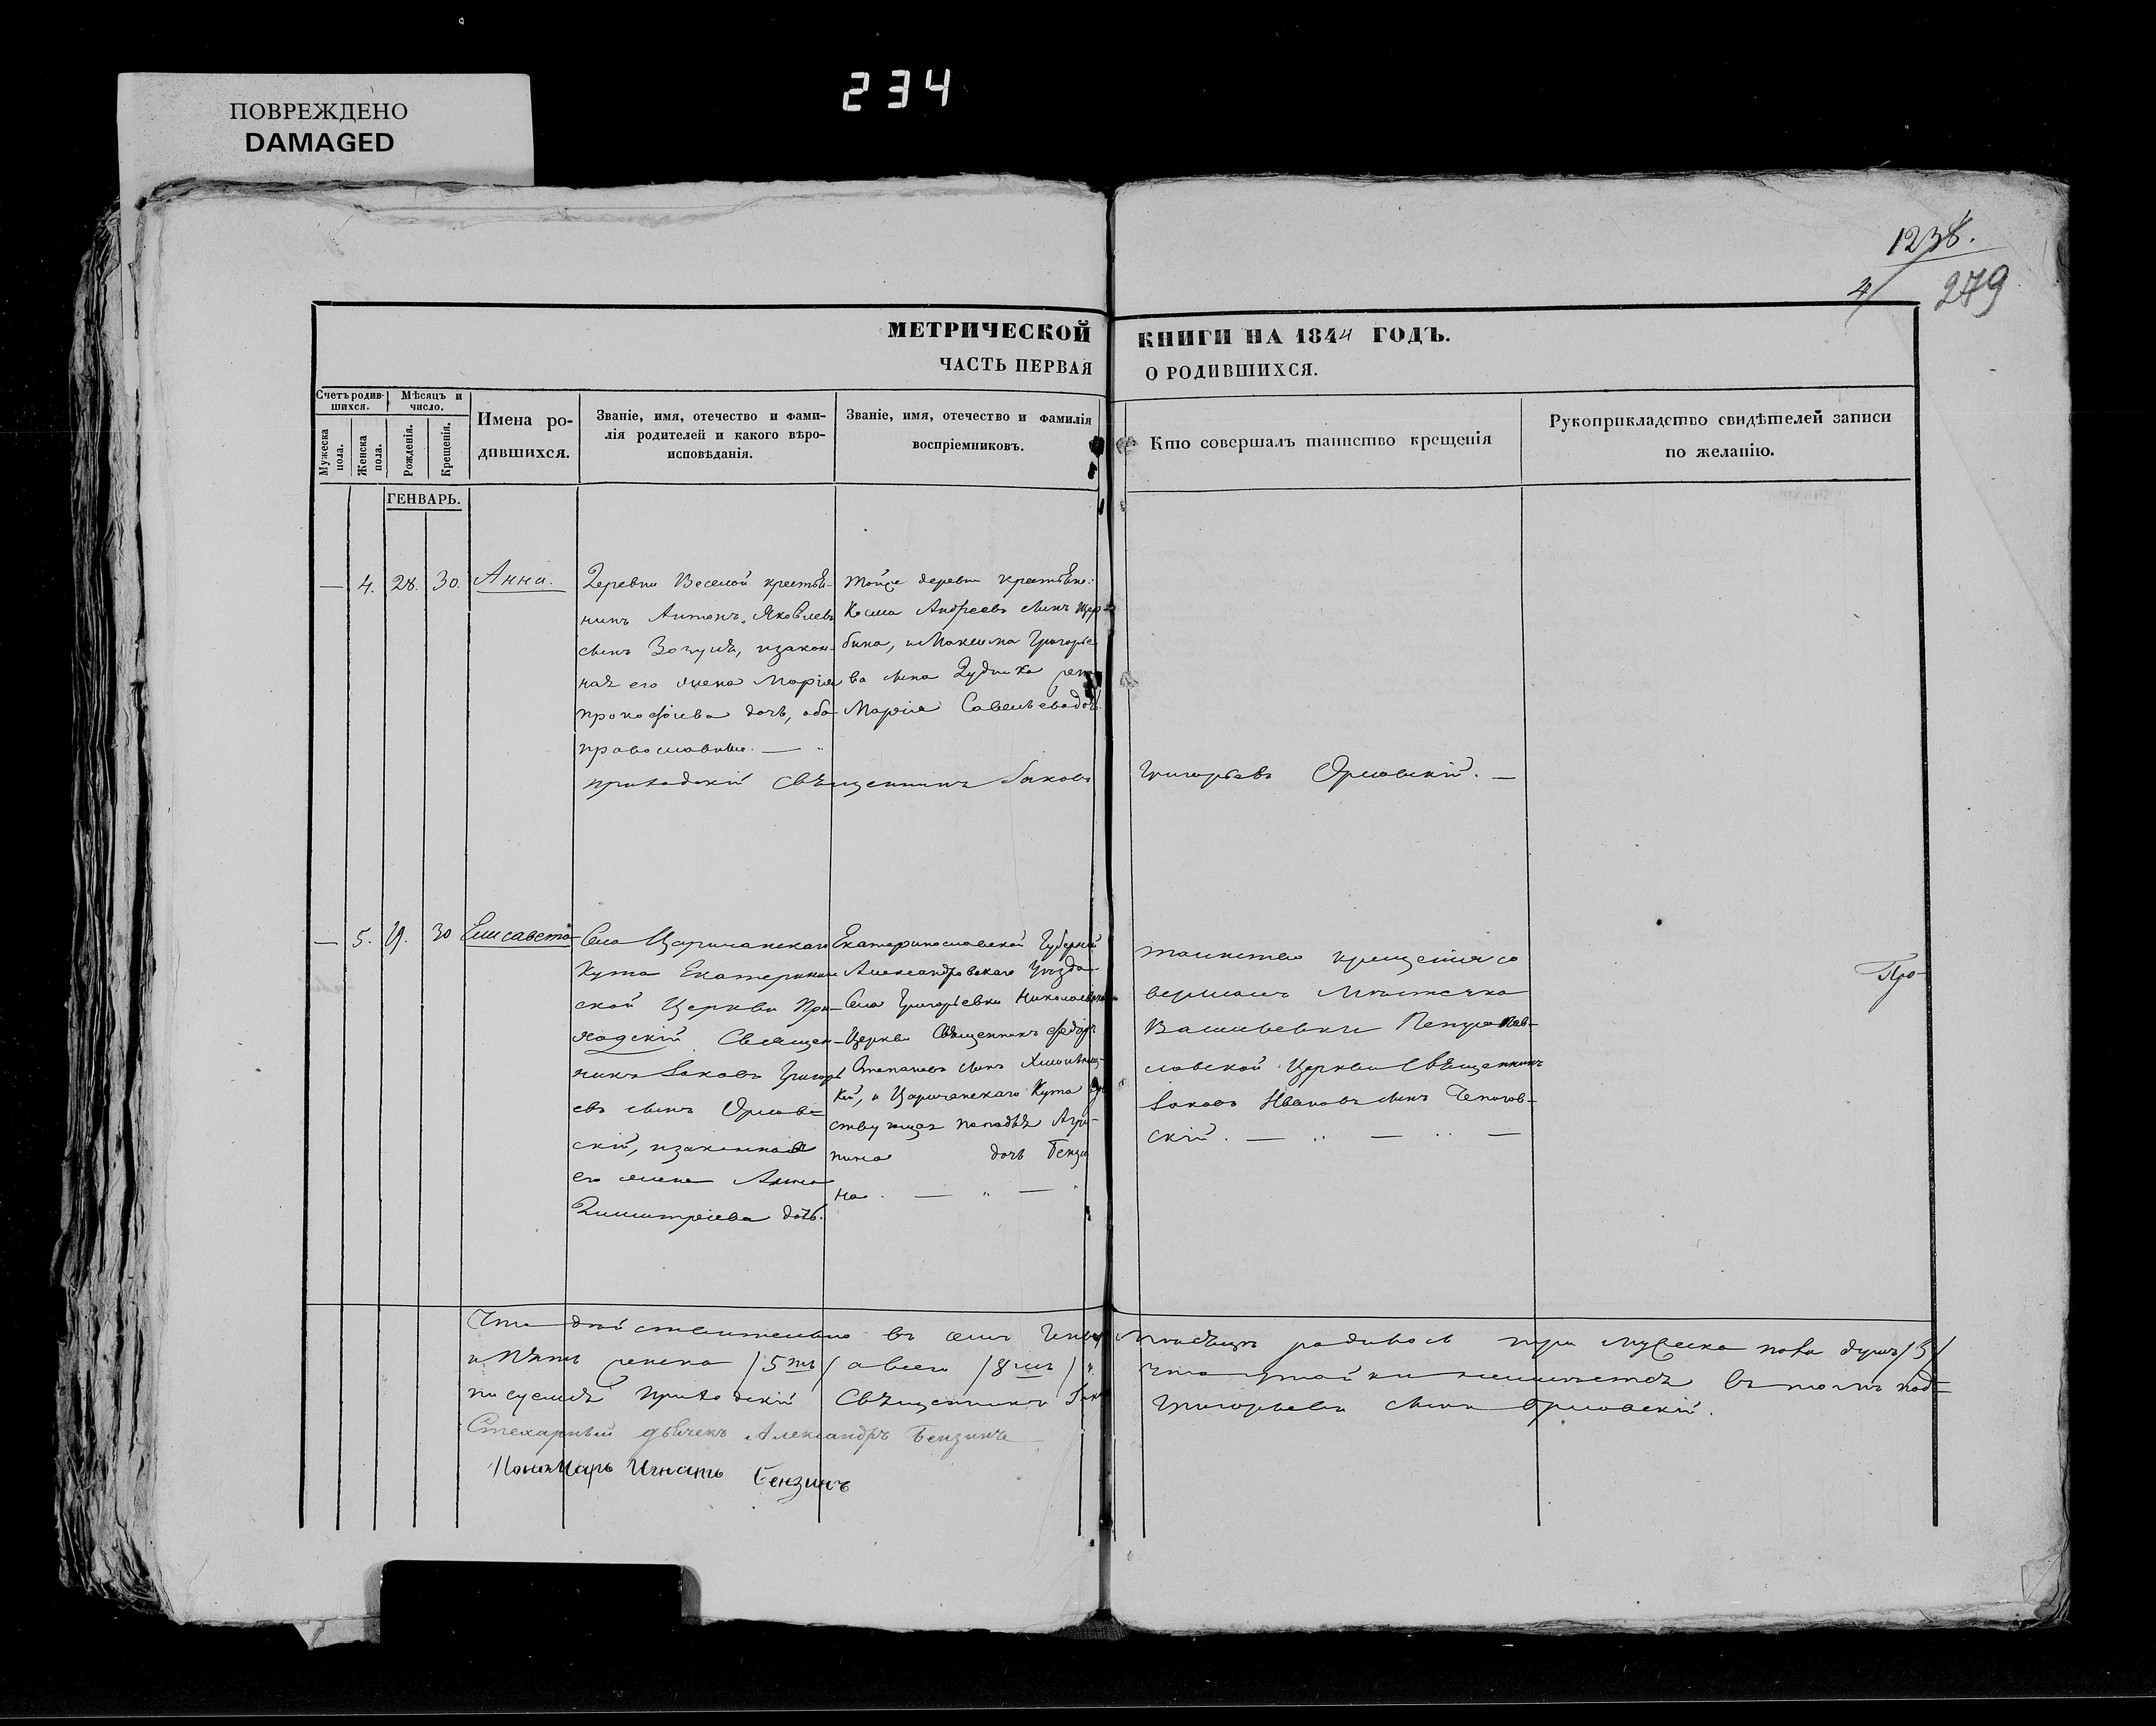 ПОВРЕЖДЕНО
DAMAGED
234
1238.
4
279
МЕТРИЧЕСКОЙ КНИГИ НА 1844 ГОДЪ.
ЧАСТЬ ПЕРВАЯ О РОДИВШИХСЯ.
Счетъ родив-
шихся.
Мужеска
пола.
Женска
пола.
Мѣсяцъ и
число.
Рожденія.
Крещенія.
Имена ро-
дившихся.
Званіе, имя, отечество и фами-
лія родителей и какого вѣро-
исповѣданія.
Званіе, имя, отечество и фамилія
воспріемниковъ.
Кто совершалъ таинство крещенія
Рукоприкладство свидѣтелей записи
по желанію.
ГЕНВАРЬ.
— 4. 28. 30. Анна.
Деревни Веселой крестья-
нинъ Антонъ Яковлевъ
сынъ, изакон-
ная его жена Марія
Прокофіева дочь, оба
православные. —
Тойже деревни крестьяне:
Косма Андреевъ сынъ Щер-
бина, и Максима Григорье-
ва сына Дудника жена
Марія Савельева дочь.
Приходскій Священникъ Іаковъ Григорьевъ Орловскій. —
— 5. 30 Елисавета
Села Царичанскаго
Кута Екатеринин-
ской Церкви При-
ходскій Священ-
никъ Іаковъ Григорь-
евъ сынъ Орлов-
скій, изаконная
его жена Анна
Димитріева дочь.
Екатеринославской Губерніи
Александровскаго Уѣзда
Села Григорьевки Николаевской
Церкви Священникъ Федоръ
Степановъ сынъ
кій, и Царичанскаго Кута
ствующая попадья Агри-
пина дочь Бензи
на. —
таинство крещенія со
вершалъ Мѣстечка
Васильевки Петропав-
ловской Церкви Священникъ
Іаковъ Ивановъ сынъ
скій. —
Про-
Что дѣйствительно въ семъ Генварѣ мѣсяцѣ родилось три мужеска пола душъ /3/
и пять женска /5ть/ а всего /8мь/ что утайки неимѣется въ томъ под-
писуемся Приходскій Священникъ Іаковъ Григорьевъ сынъ Орловскій.
Стихарный дьячекъ Александръ Бензинъ
Пономарь Игнатъ Бензинъ